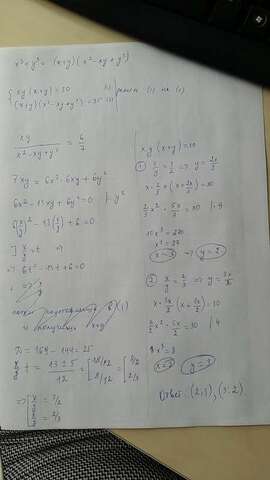 x³+y³ = (x+y)(x²-xy+y²)
{ xy(x+y)=30 (1)
(x+y)(x²-xy+y²)=35 (2)
xy / (x²-xy+y²) = 6/7
7xy = 6x²-6xy+6y²
6x²-13xy+6y²=0 | : y²
6(x/y)²-13(x/y)+6=0
] x/y = t ⇒
⇒ 6t²-13t+6=0
D = 169-144=25
x/y = t = (13±5)/12 = [ 18/12 8/12 = [ 3/2 2/3
⇒ [ x/y = 3/2
x/y = 2/3
xy(x+y)=30
① x/y = 3/2 ⇒ y = 2x/3
x·2x/3 (x+2x/3)=30
2/3 x²·5x/3=30 | ·9
10x³=270
x³=27
x=3 ⇒ y=2
② x/y = 2/3 ⇒ y = 3x/2
x·3x/2 (x+3x/2)=30
x=2 y=3
Ответ: (2;3), (3;2)